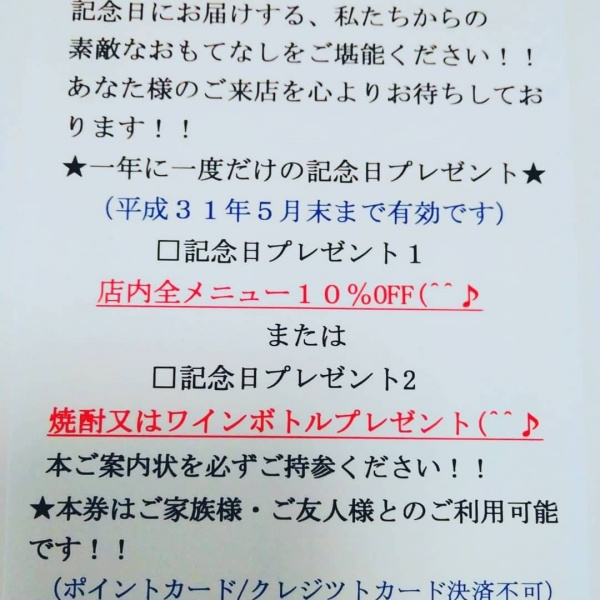 記念日にお届けする、私たちからの
素敵なおもてなしをご堪能ください！！
あなた様のご来店を心よりお待ちしてお
ります！！
★一年に一度だけの記念日プレゼント★
（平成３１年５月末まで有効です）
□記念日プレゼント１
店内全メニュー１０％OFF(^^♪
または
□記念日プレゼント2
焼酎又はワインボトルプレゼント(^^♪
本ご案内状を必ずご持参ください！！
★本券はご家族様・ご友人様とのご利用可能
です！！
（ポイントカード/クレジツトカード決済不可）